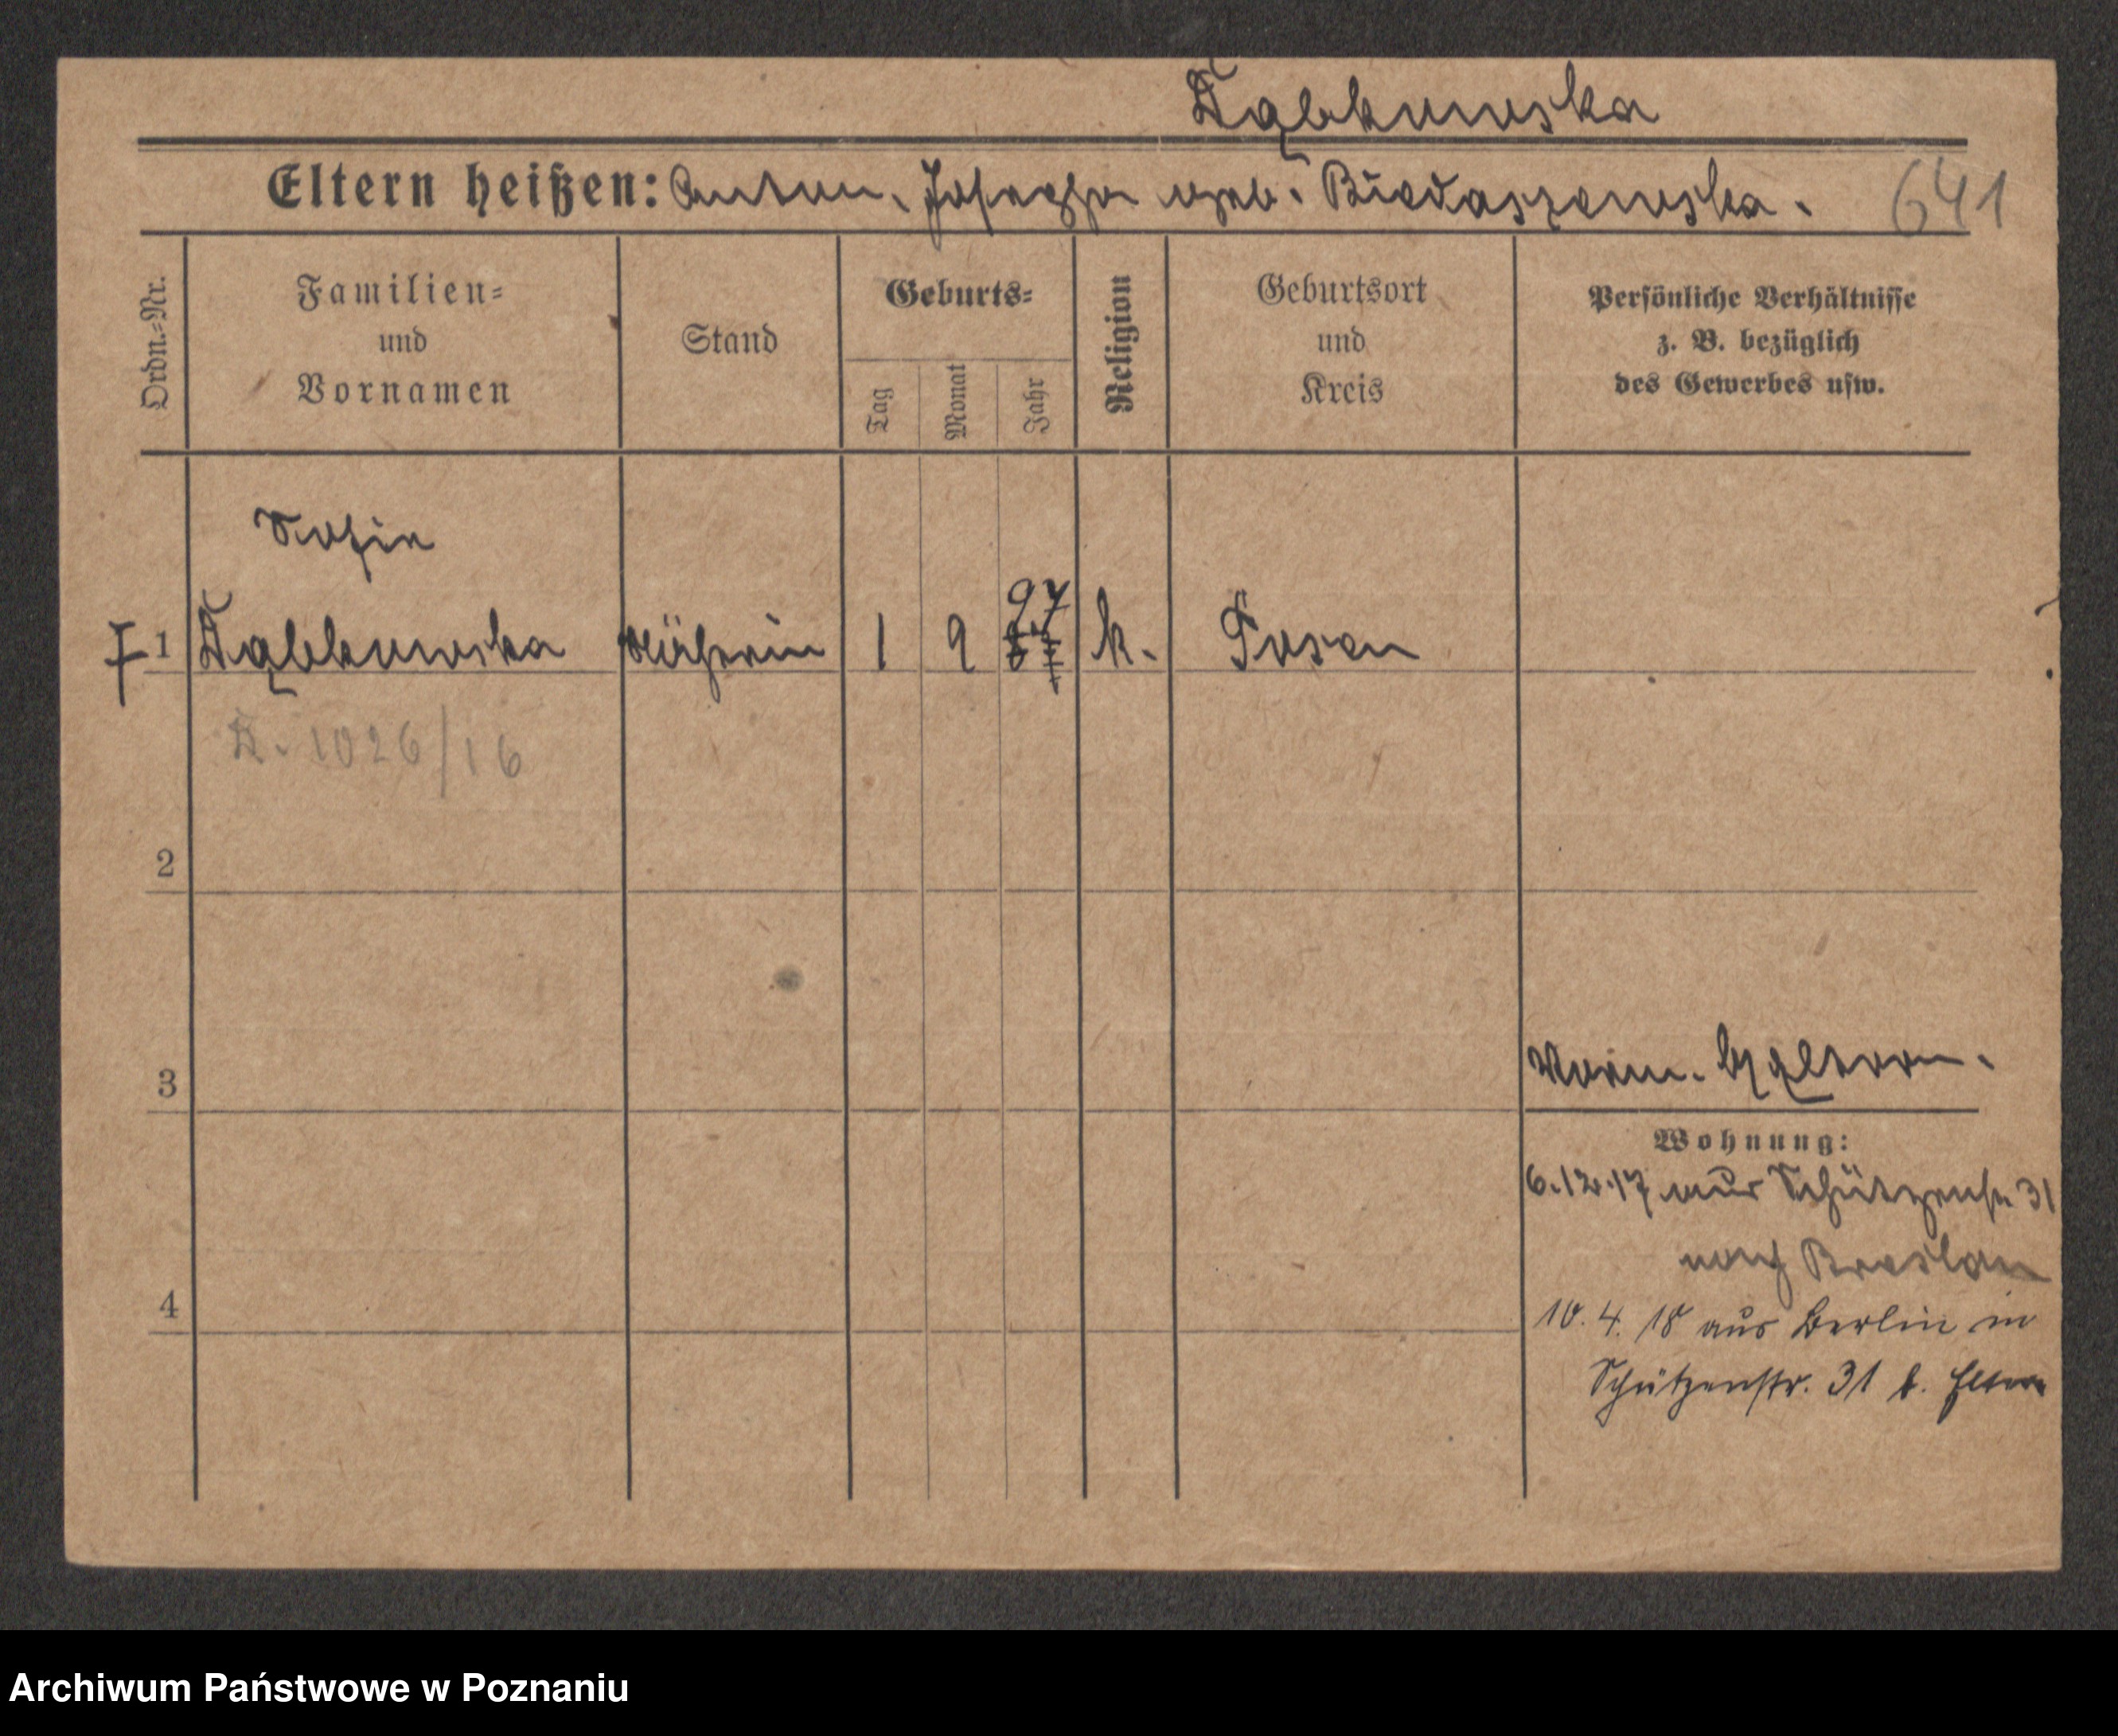 Dąbkowska
Eltern heißen: Anton, Josepha geb. Biedaszewska. 641
Ordn.-Nr.
Familien-
und
Vornamen
Stand
Geburts-
Tag
Monat
Jahr
Religion
Geburtsort
und
Kreis
Persönliche Verhältnisse
z. B. bezüglich
des Gewerbes usw.
Sofie
1 Dąbkowska Näherin 1 9 97 k. Posen
1026/16
2
3
Wohnung:
6.12.17 aus Schützenstr. 31
nach Breslau
4
10. 4. 18 aus Berlin in
Schützenstr. 31 b. Eltern
Archiwum Państwowe w Poznaniu